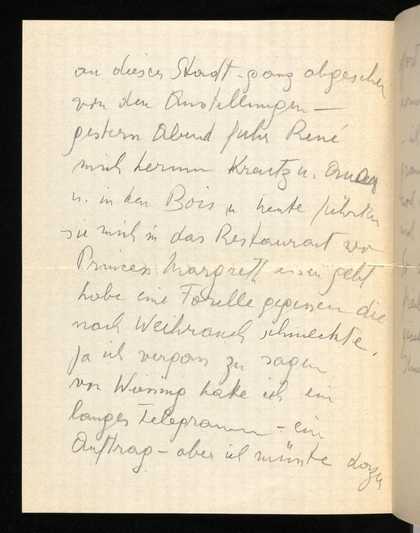 an dieser Stadt - ganz abgesehen
von den Ausstellungen -
gestern Abend fuhr René
mich herum Kreutz u.
u. in den Bois u heute führten
sie mich in das Restaurant wo
Princess Margreth essen geht
habe eine Forelle gegessen die
nach Weihrauch schmeckte,
ja ich vergass zu sagen
von habe ich ein
langes Telegramm - ein
Auftrag - aber ich müsste dazu